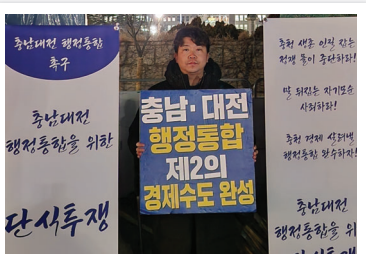 충남대전 행정통합
촉구
충남대전
행정통합을 위한
단식투쟁
충남·대전
행정통합
제2의
경제수도 완성
충청 생존 인질 잡는
정쟁 놀이 중단하라!
말 뒤집은 자기모순
사죄하라!
충청 경제 살려낼
행정통합 완수하자!
충남대전
행정통합을 위